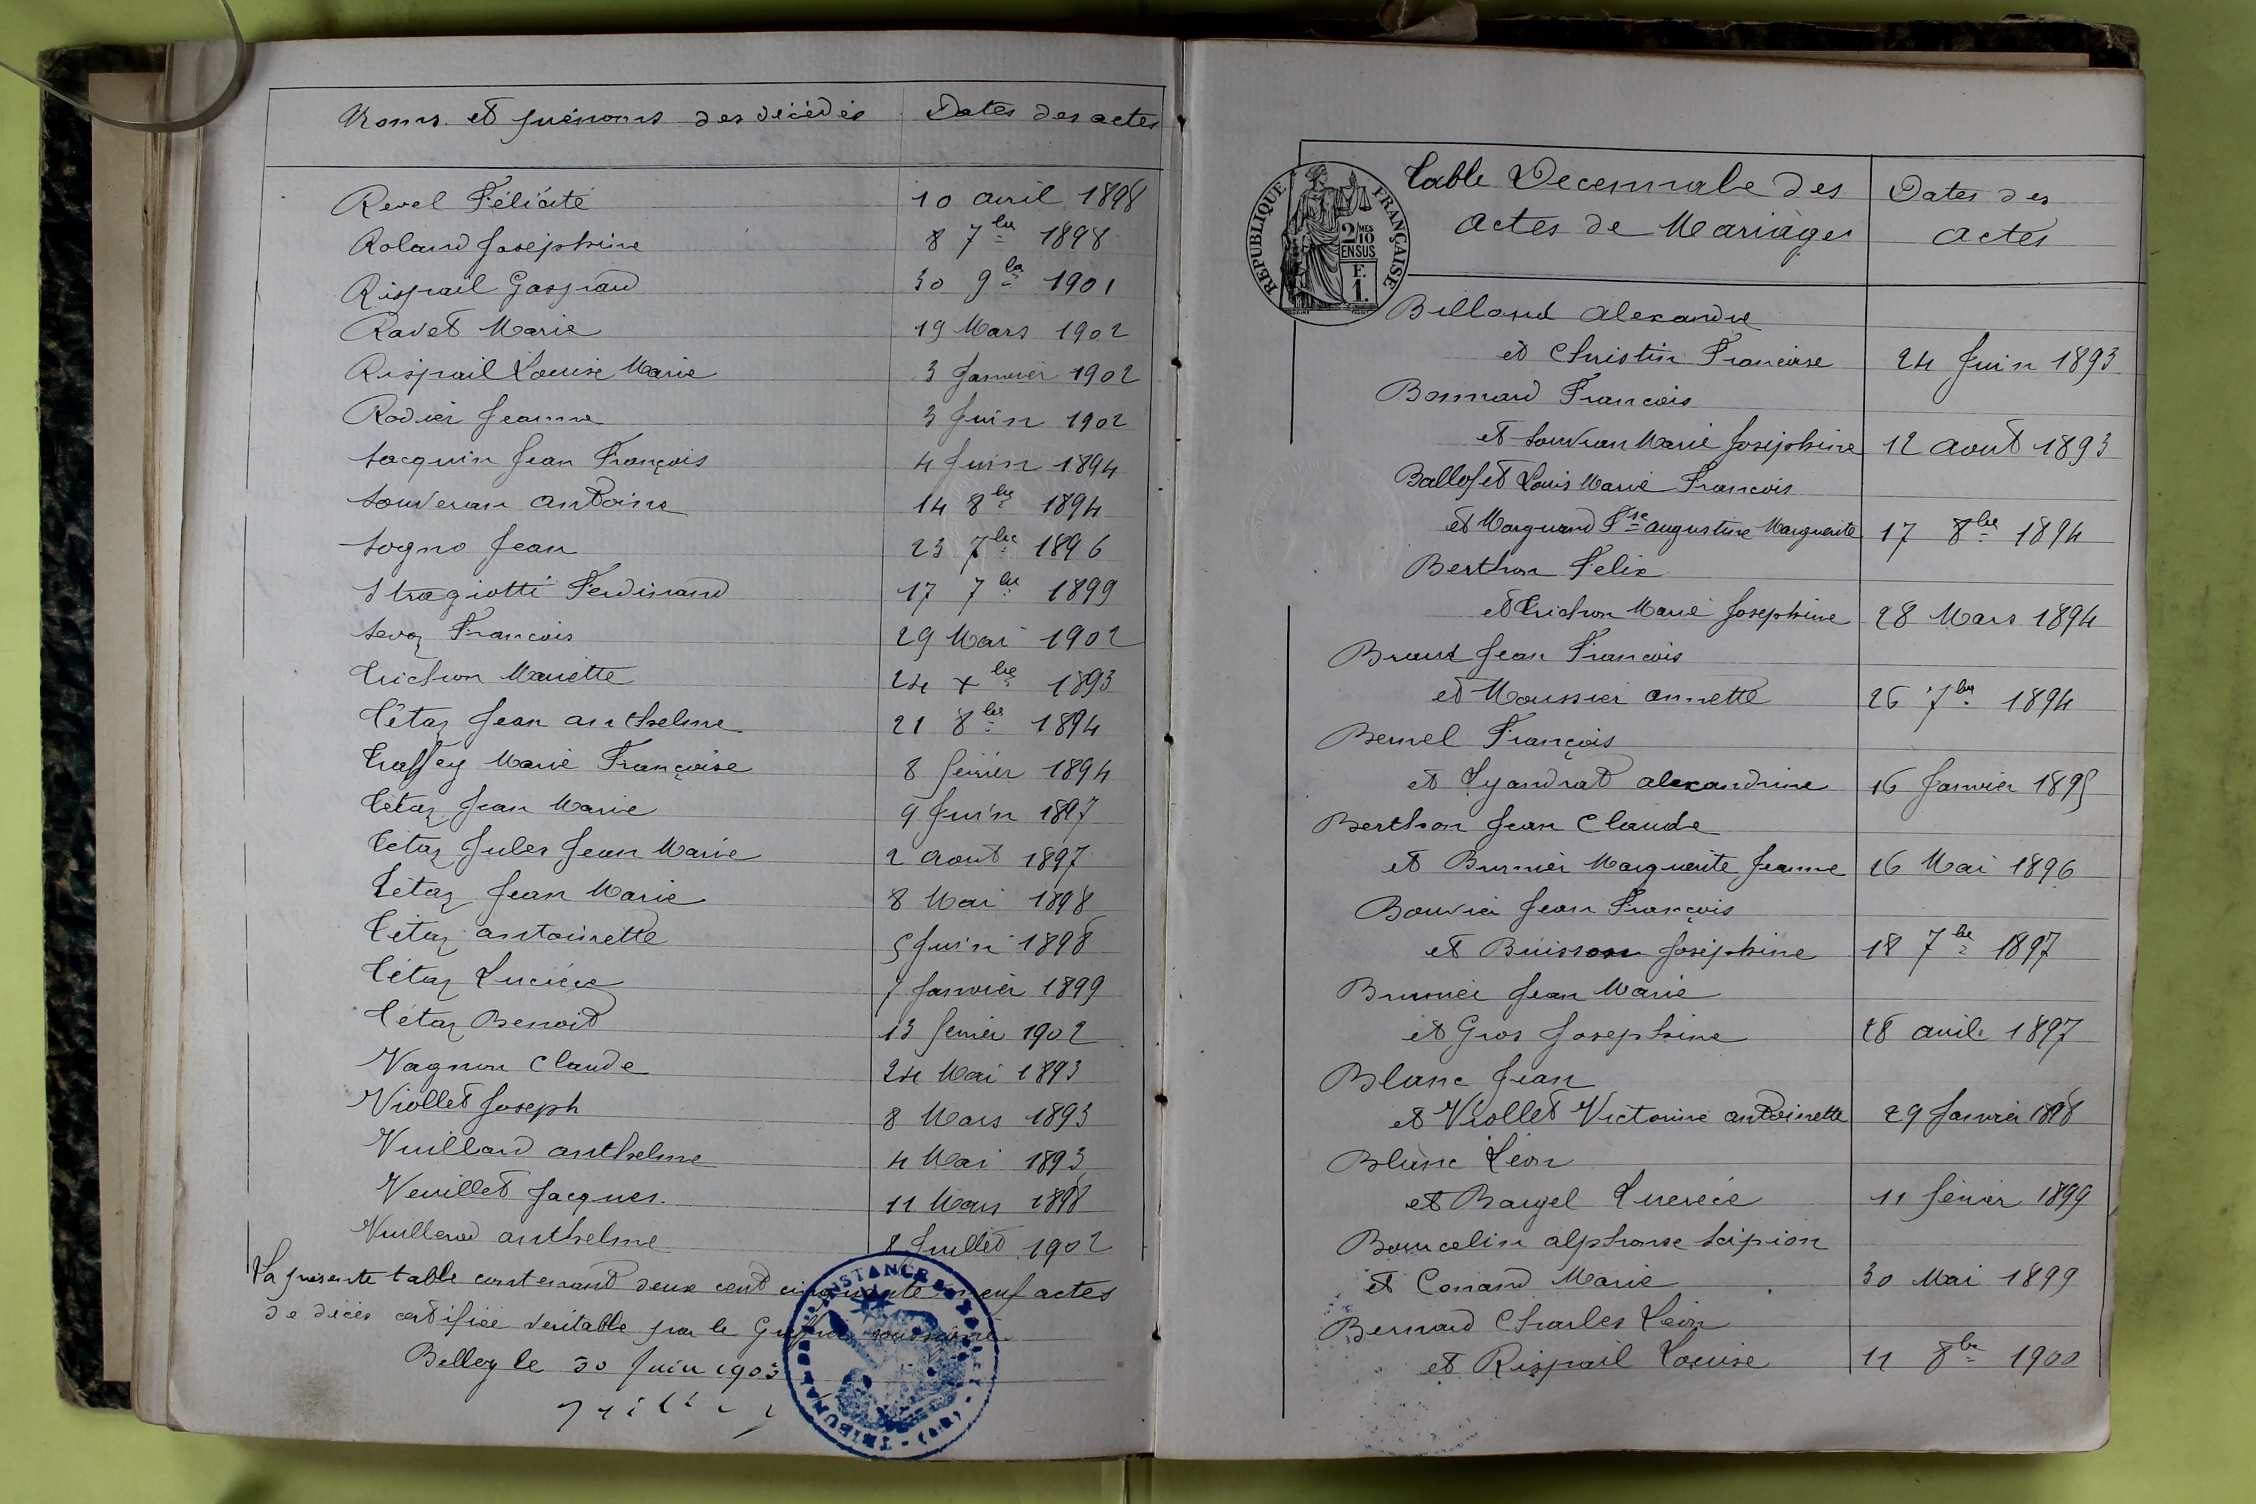 Noms et prénoms des décédés Dates des actes
Revel Félicité 10 avril 1898
Roland Joséphine 8 7bre 1898
Rispail Gaspard 30 9bre 1901
Ravet Marie 19 Mars 1902
Rispail Louise Marie 3 Janvier 1902
Rodier Jeanne 3 Juin 1902
Sacquin Jean François 4 Juin 1894
Souveran Antoine 14 8bre 1894
Sogno Jean 23 7bre 1896
Stragiotti Ferdinand 17 7bre 1899
Sevoz François 29 Mai 1902
Trichon Mariette 24 xbre 1893
Tétaz Jean Anthelme 21 8bre 1894
Traffey Marie Françoise 8 février 1894
Tétaz Jean Marie 9 Juin 1897
Tétaz Jules Jean Marie 2 Aout 1897
Tétaz Jean Marie 8 Mai 1898
Tétaz Antoinette 5 Juin 1898
Tétaz Lucièce 7 Janvier 1899
Tétaz Benoit 13 fevrier 1902
Vagnon Claude 24 Mai 1893
Viollet Joseph 8 Mars 1893
Vuillard anthelme 4 Mai 1893
Veuillet Jacques 11 Mars 1898
Vuillerod anthelme 8 Juillet 1902
La présente table contenant deux cent cinquante neuf actes
de décès certifiée véritable par le Greffier soussigné
Belley le 30 Juin 1903
TRIBUNAL DE 1re INSTANCE DE BELLEY (AIN)
REPUBLIQUE FRANÇAISE
2 MES 10
EN SUS
F. 1.
Table Decennale des Dates des
Actes de Mariages actes
Billand Alexandre
et Christin Francoise 24 Juin 1893
Bonnard Francois
et Souvran Marie Joséphine 12 aout 1893
Ballofet Louis Marie Francois
et Marguand Fse Augustine Marguerite 17 8bre 1894
Berthon Felix
et Trichon Marie Josephine 28 Mars 1894
Braud Jean Francois
et Moussier annette 26 7bre 1894
Bernel François
et Lyandrat alexandrine 16 Janvier 1895
Berthon Jean Claude
et Burnier Marguerite Jeanne 26 Mai 1896
Bouvier Jean François
et Buisson Joséphine 18 7bre 1897
Brunier Jean Marie
et Gros Josephine 28 avril 1897
Blanc Jean
et Viollet Victorine antoinette 29 Janvier 1898
Blanc Léon
et Bargel Lucrèce 11 février 1899
Bouncelin alphonse Scipion
et Conand Marie 30 Mai 1899
Bernard Charles Léon
et Rispail Louise 11 8bre 1900